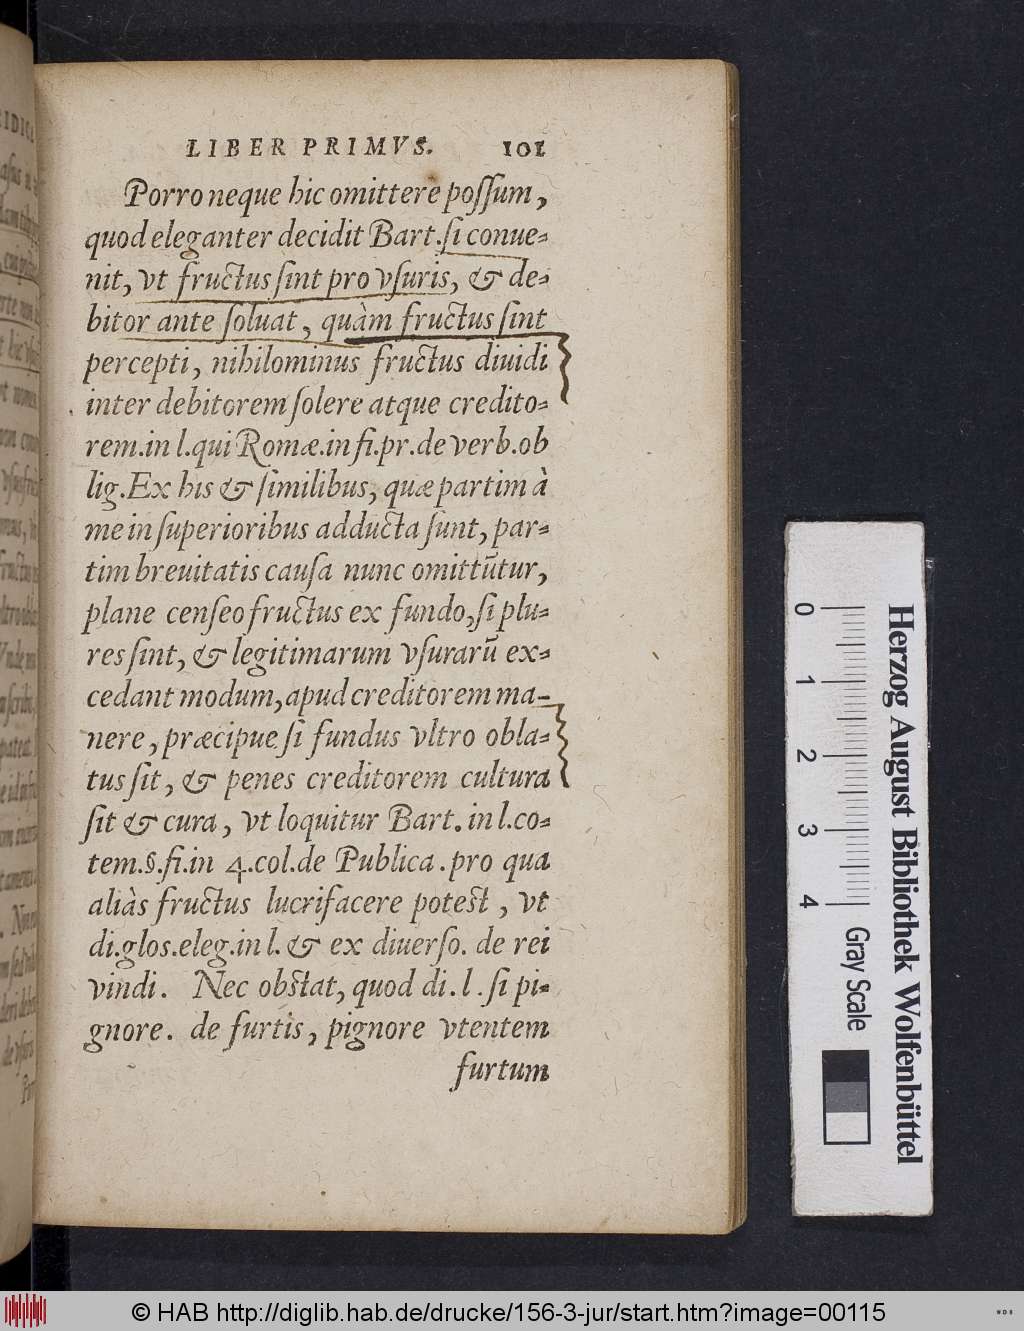 LIBER PRIMVS. 101
Porro neque hic omittere poſſum,
quod eleganter decidit Bart. ſi conue-
nit, vt fructus ſint pro vſuris, & de-
bitor ante ſoluat, quàm fructus ſint
percepti, nihilominus fructus diuidi
inter debitorem ſolere atque credito-
rem. in l. qui Romæ. in fi. pr. de verb. ob
lig. Ex his & ſimilibus, quæ partim à
me in ſuperioribus adducta ſunt, par-
tim breuitatis cauſa nunc omittūtur,
plane cenſeo fructus ex fundo, ſi plu-
res ſint, & legitimarum vſurarū ex-
cedant modum, apud creditorem ma-
nere, præcipue ſi fundus vltro obla-
tus ſit, & penes creditorem cultura
ſit & cura, vt loquitur Bart. in l. co-
tem. §. fi. in 4. col. de Publica. pro qua
aliàs fructus lucrifacere poteſt, vt
di. glos. eleg. in l. & ex diuerſo. de rei
vindi. Nec obſtat, quod di. l. ſi pi-
gnore. de furtis, pignore vtentem
furtum
0 1 2 3 4
Gray Scale
Herzog August Bibliothek Wolfenbüttel
© HAB http://diglib.hab.de/drucke/156-3-jur/start.htm?image=00115